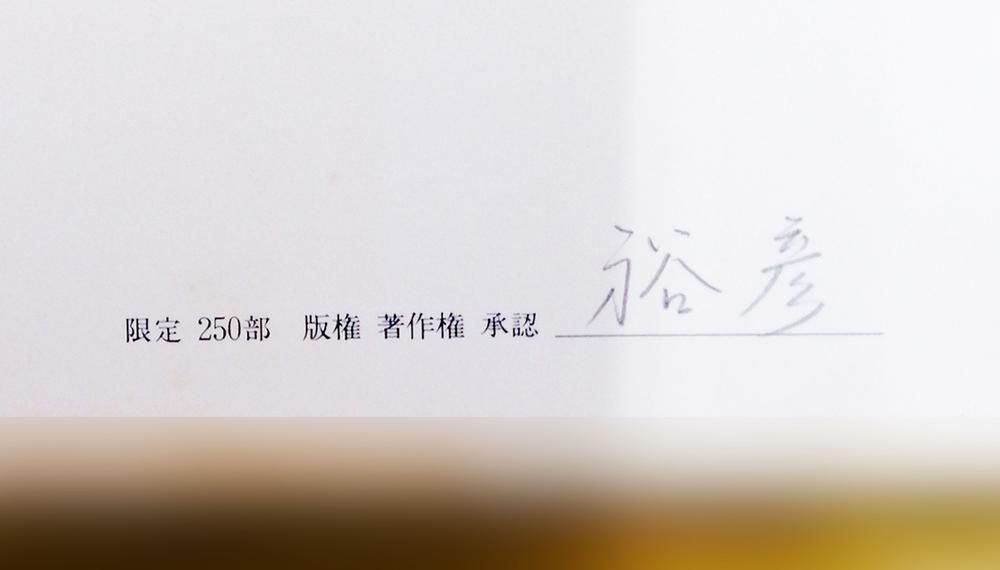 限定 250部 版権 著作権 承認 裕彦